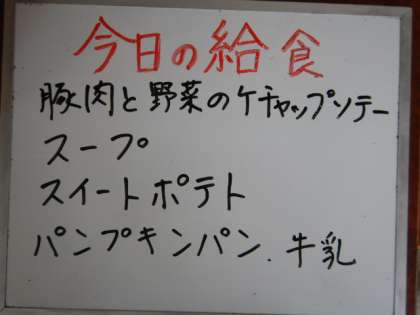 今日の給食
豚肉と野菜のケチャップソテー
スープ
スイートポテト
パンプキンパン.牛乳